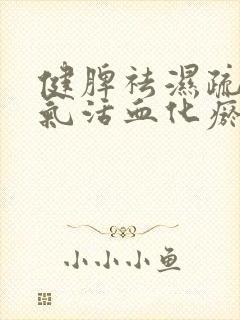 健脾祛濕疏
氣活血化瘀
小小小鱼